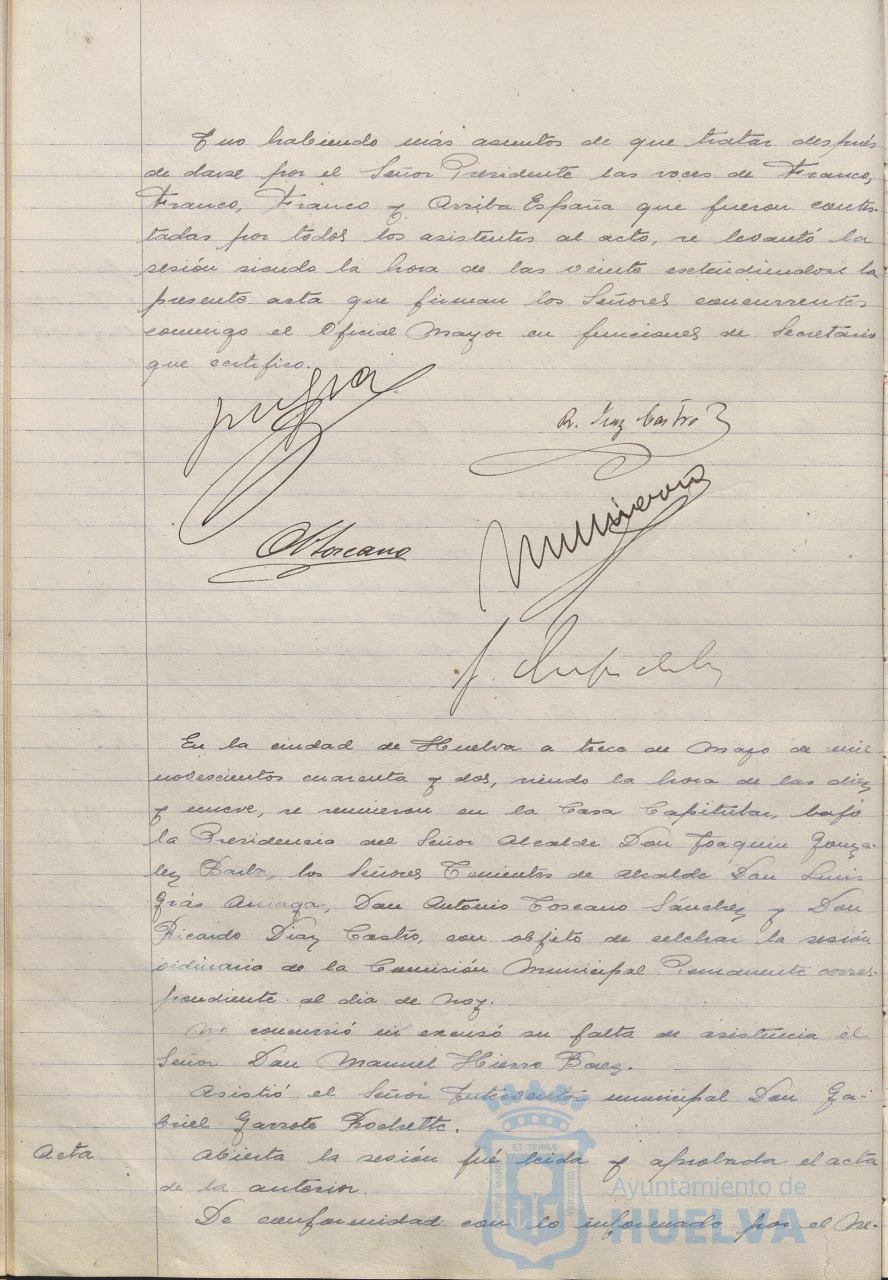 Y no habiendo más asuntos de que tratar después
de darse por el Señor Presidente las voces de Franco,
Franco, Franco y Arriba España que fueron contes-
tadas por todos los asistentes al acto, se levantó la
sesión siendo la hora de las veinte extendiendose la
presente acta que firman los Señores concurrentes
conmigo el Oficial Mayor en funciones de Secretario
que certifico.
R. Diaz Castro
A Toscano
En la ciudad de Huelva a trece de Mayo de mil
novescientos cuarenta y dos, siendo la hora de las diez
y nueve, se reunieron en la Casa Capitular, bajo
la Presidencia del Señor Alcalde Don Joaquin Gonza-
lez Barba, los Señores Tenientes de Alcalde Don Luis
Grás Arriaga, Don Antonio Toscano Sánchez y Don
Ricardo Diaz Castro, con objeto de celebrar la sesión
ordinaria de la Comisión Municipal Permanente corres-
pondiente al dia de hoy.
No concurrió ni excusó su falta de asistencia el
Señor Don Manuel Hierro Baez.
Asistió el Señor Interventor municipal Don Ga-
briel Garrote Rochette.
Acta
Abierta la sesión fué leida y aprobada el acta
de la anterior.
De conformidad con lo informado por el Ne-
ET TERRÆ
Ayuntamiento de
HUELVA